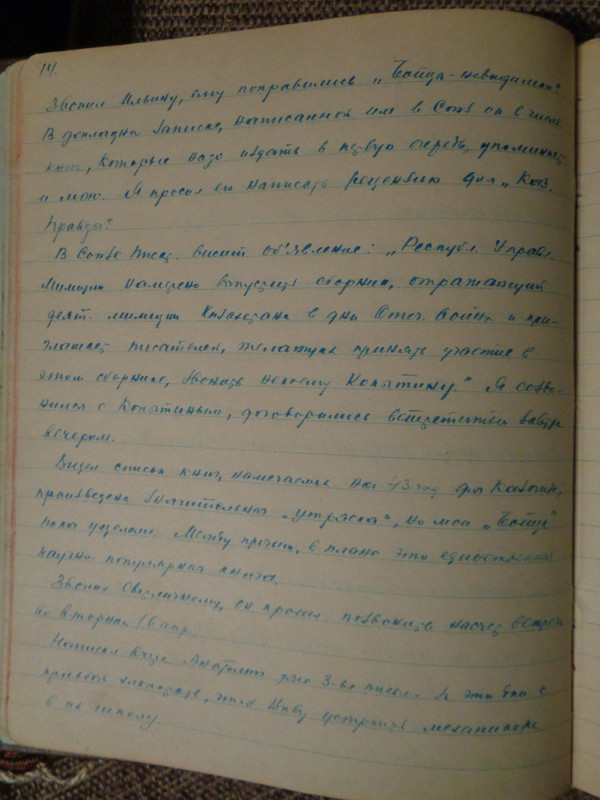 14.
Звонил Ильину, ему понравились „Бойцы-невидимки“.
В докладной записке, написанной им в Союз он в числе
книг, которые надо издать в первую очередь, упоминает
и мою. Я просил его написать рецензию для „Каз.
Правды“.
В Союзе Писат. висит объявление: „Республ. Управл.
Милиции намерено выпустить сборник, отражающий
деят. милиции Казахстана в дни Отеч. Войны и при-
глашает писателей, желающих принять участие в
этом сборнике, звонить некоему Копытину.“ Я созво-
нился с Копытиным, договорились встретиться завтра
вечером.
Видел список книг, намечаемых на 43 год для
произведена значительная „утряска“, но мои „Бойцы“
пока уцелели. Между прочим, в плане это единственная
научно-популярная книга.
Звонил он просил позвонить насчет встречи
во вторник (6 апр.
Написал Анатолию уже 3-ье письмо. В это с
просьбой узнать, чтоб устроить механиком
в их школу.